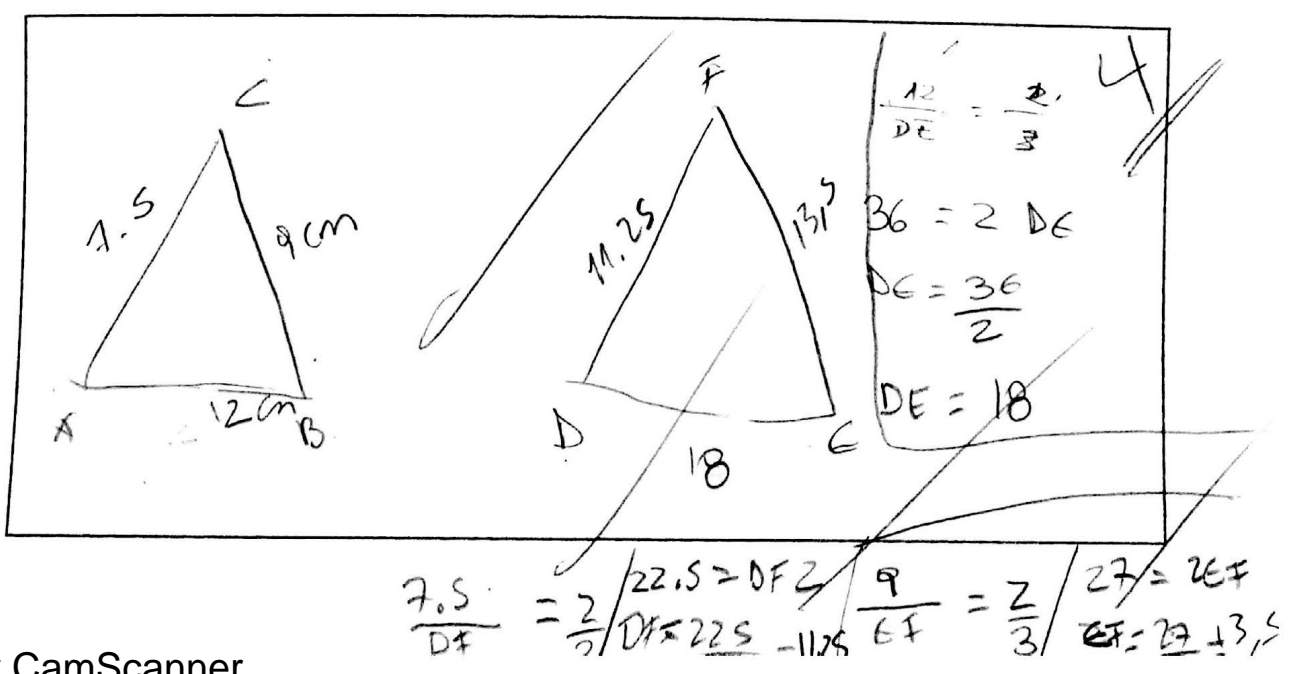 C
7.5
9 cm
A
12 cm
B
F
11.25
13,5
D
18
E
12/DE = 2/3
36 = 2 DE
DE = 36/2
DE = 18
4
7.5/DF = 2/3
22.5 = DF 2
DF = 225 = 11.25
9/EF = 2/3
27 = 2EF
EF = 27 13,5
CamScanner